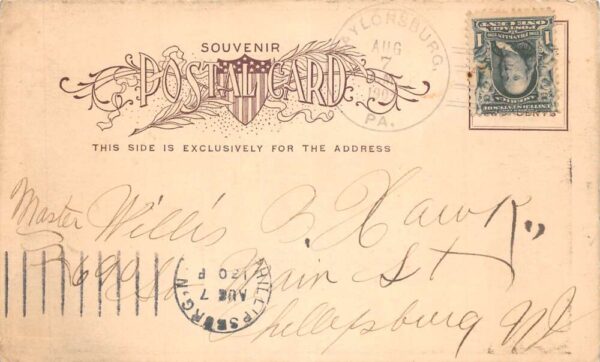 SOUVENIR
POSTAL CARD
THIS SIDE IS EXCLUSIVELY FOR THE ADDRESS
AYLORSBURG,
AUG
7
190
PA.
ONE CENT
1 1
CENTS
Master Willis B. Hawk,
690 So Main St
Phillipsburg NJ
PHILLIPSBURG. N
AUG 7
1 30 P